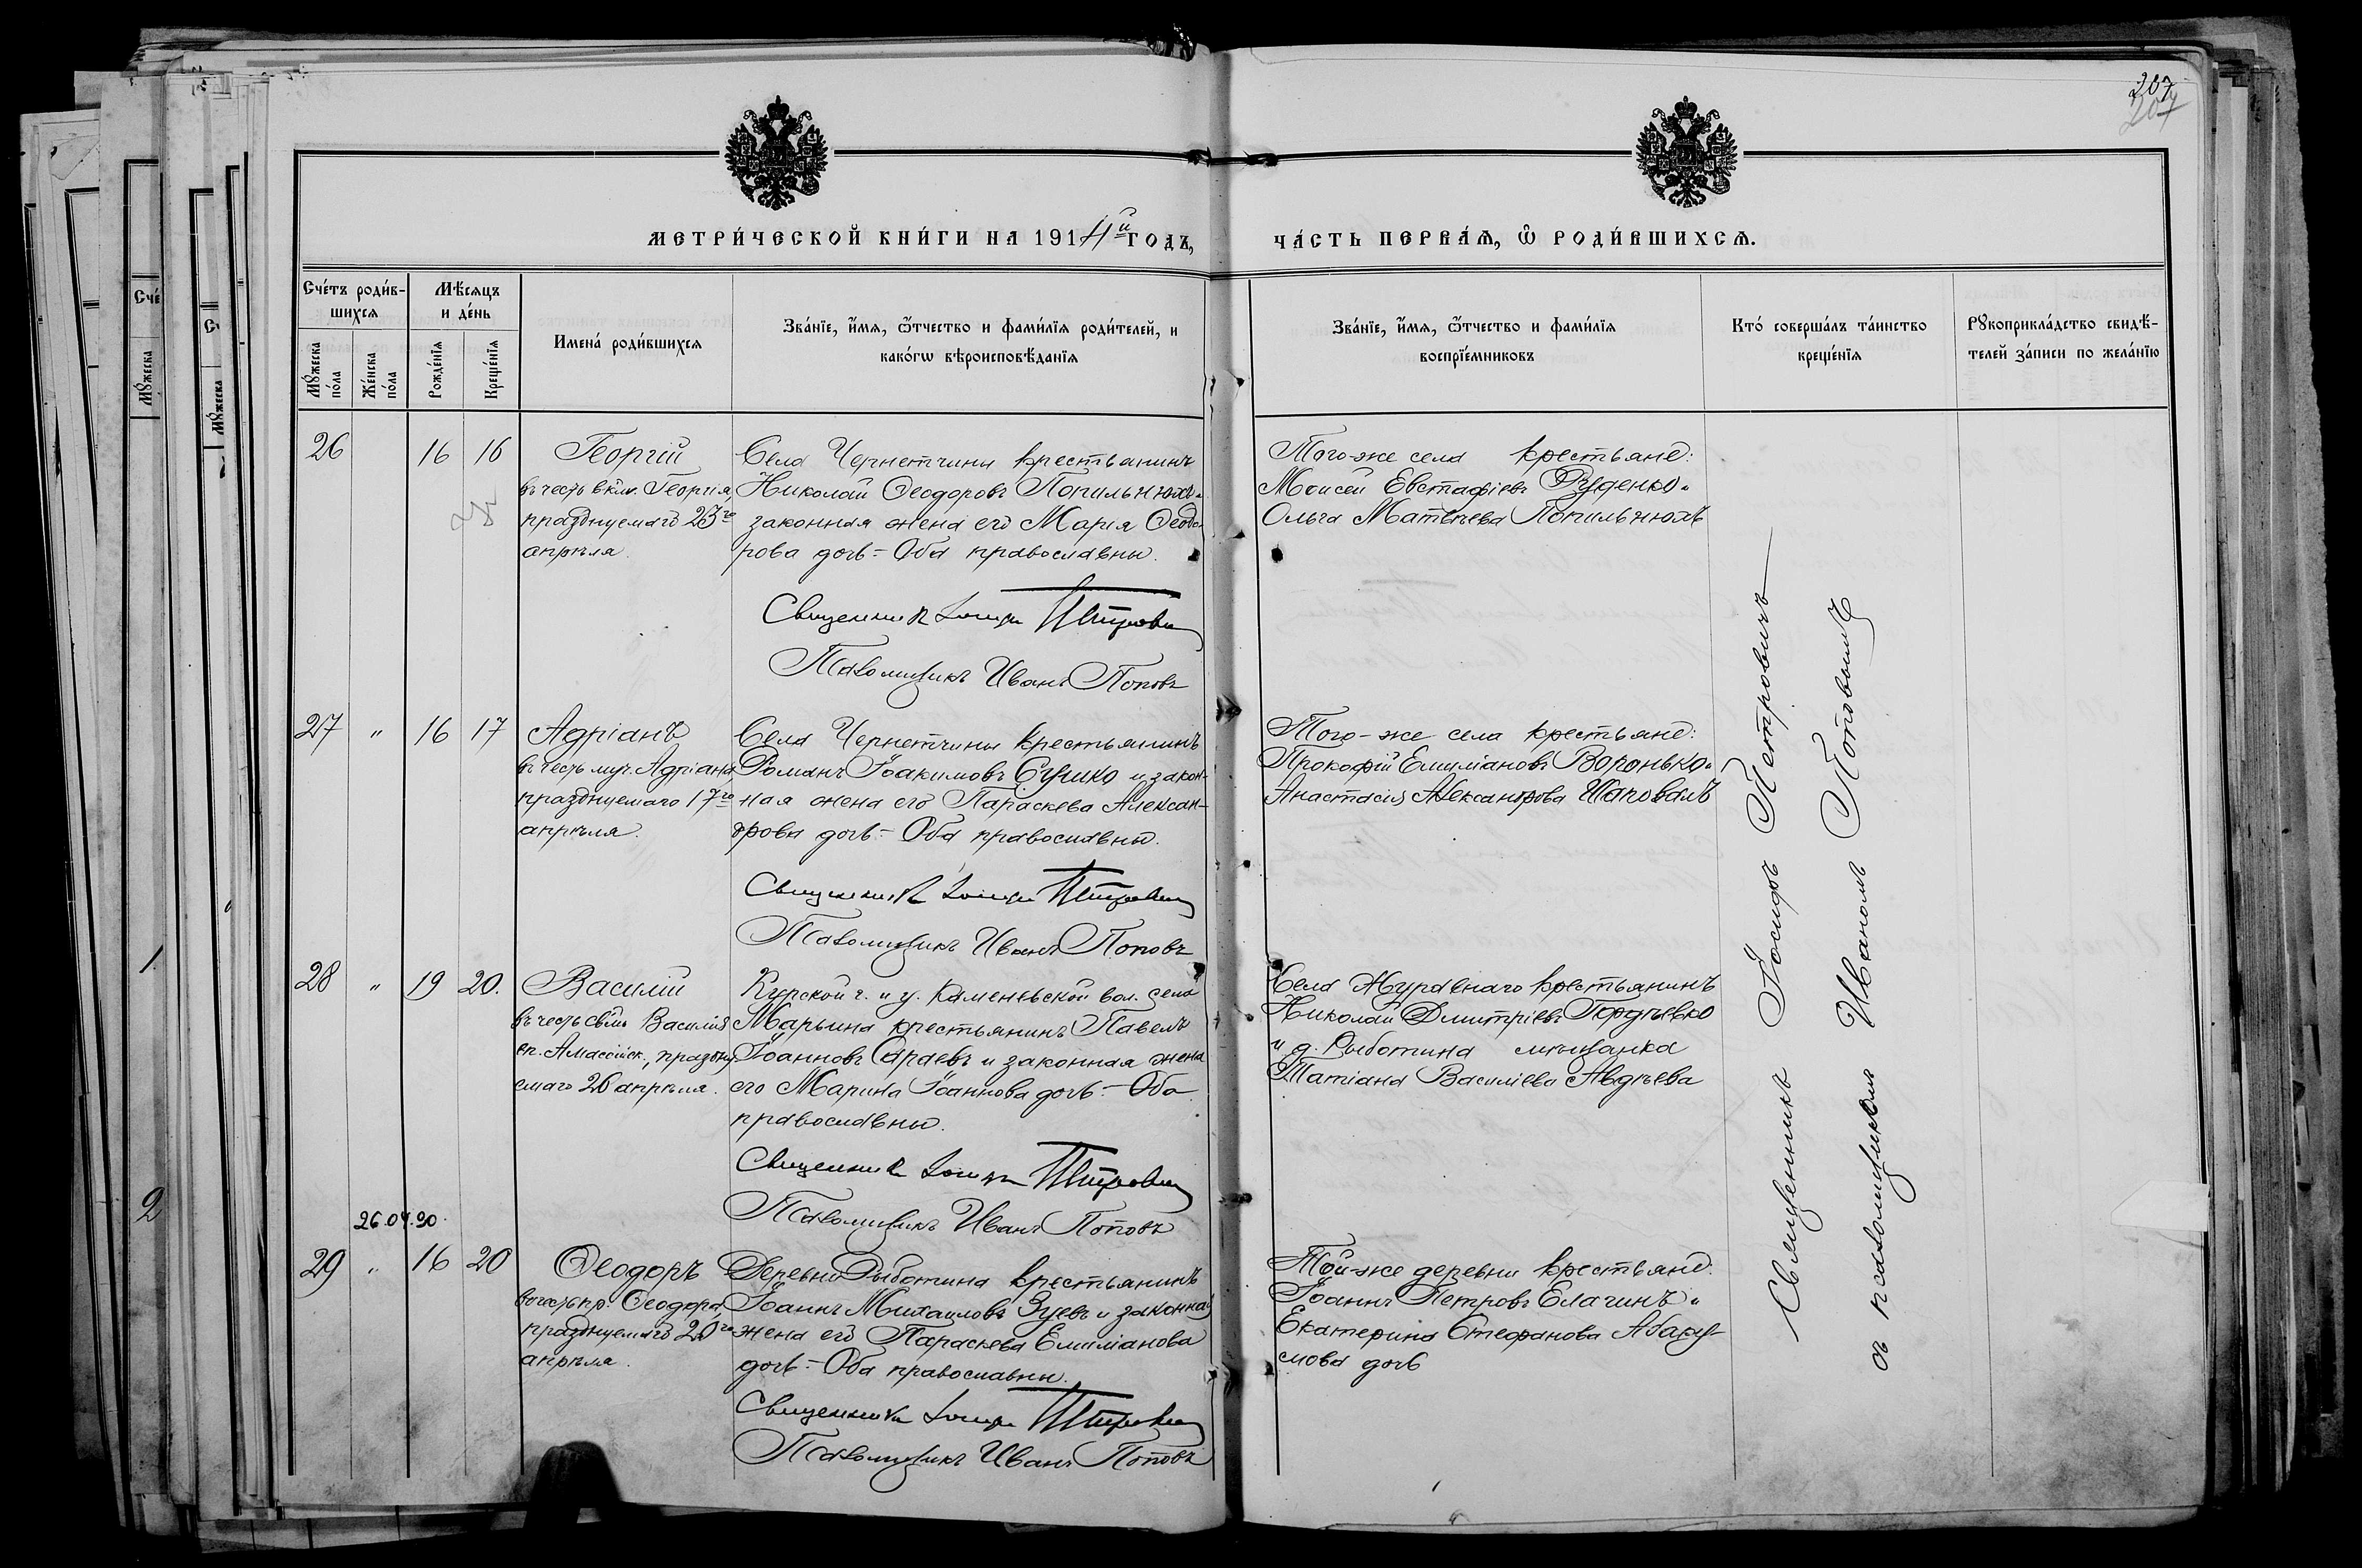 207
207
МЕТРИ́ЧЕСКОЙ КНИ́ГИ НА 1914й ГОДЪ,
ЧА́СТЬ ПЕРВА́Ѧ, Ѡ҆ РОДИ́ВШИХСѦ.
Сче́тъ роди́в-
шихсѧ
Мѣ́сѧцъ
и де́нь
Мꙋ́жеска
по́ла
Же́нска
по́ла
Рожде́нїѧ
Креще́нїѧ
Имена́ роди́вшихсѧ
Зва́нїе, и́мѧ, ѻ҆́тчество и фами́лїѧ роди́телей, и
како́гѡ вѣроисповѣ́данїѧ
Зва́нїе, и́мѧ, ѻ҆́тчество и фами́лїѧ
воспрїе́мниковъ
Кто́ соверша́лъ та́инство
креще́нїѧ
Рꙋкоприкла́дство свидѣ́-
телей за́писи по жела́нїю
26 16 16
Георгій
въ честь вкмч. Георгія,
празднуемаго 23го
апрѣля.
Села Чернетчины крестьянинъ
Николай Ѳеодоровъ Попильнюхъ и
законная жена его Марія Ѳеодо-
рова дочь. – Оба православны.
Священникъ Іосифъ Петровичъ
Псаломщикъ Иванъ Поповъ
Того-же села крестьяне:
Моисей Евстафіевъ Руденко и
Ольга Матвѣева Попильнюхъ
27 " 16 17
Адріанъ
въ честь муч. Адріана,
празднуемаго 17го
апрѣля.
Села Чернетчины крестьянинъ
Романъ Іоакимовъ Сушко и закон-
ная жена его Параскева Алексан-
дрова дочь. – Оба православны.
Священникъ Іосифъ Петровичъ
Псаломщикъ Иванъ Поповъ
Того-же села крестьяне:
Прокофій Емиліановъ Воронько и
Анастасія Александрова Шаповалъ
28 " 19 20.
Василій
въ честь свящ. Василія
еп. Амасійск., праздну-
емаго 26 апрѣля.
Курской г. и у. Каменевской вол. села
Марьина крестьянинъ Павелъ
Іоанновъ Сараевъ и законная жена
его Марина Іоаннова дочь. – Оба
православны.
Священникъ Іосифъ Петровичъ
Псаломщикъ Иванъ Поповъ
Села Журавнаго крестьянинъ
Николай Димитріевъ Гордѣевко
и д. Рыботина мѣщанка
Татіана Василіева Авдѣева
26.04.90.
29 " 16 20
Ѳеодоръ
въ честь пр. Ѳеодора,
празднуемаго 20го
апрѣля.
Деревни Рыботина крестьянинъ
Іоаннъ Михаиловъ Зуевъ и законная
жена его Параскева Емиліанова
дочь. – Оба православны.
Священникъ Іосифъ Петровичъ
Псаломщикъ Иванъ Поповъ
Той-же деревни крестьяне:
Іоаннъ Петровъ Елагинъ и
Екатерина Стефанова Абаку-
мова дочь
Священникъ Іосифъ Петровичъ
съ псаломщикомъ Иваномъ Поповымъ
1.
2